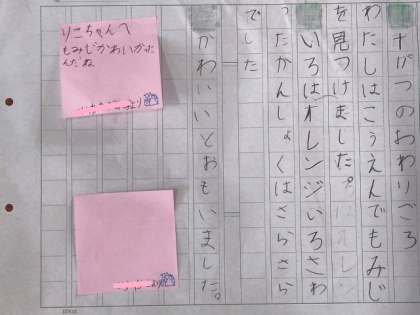 十がつのおわりごろ
わたしはこうえんでもみじ
を見つけました。
いろはオレンジいろさわ
ったかんしょくはさらさら
でした
かわいいとおもいました。
りこちゃんへ
もみじかわいかった
んだね
より
より